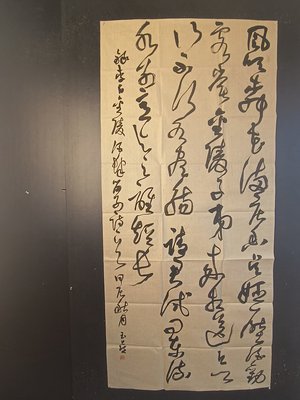 風吹柳花滿店香吳姬壓酒勸
客嘗金陵子弟來相送欲
行不行各盡觴請君試問東流
水別意與之誰短長
錄李白金陵酒肆留別詩一首甲辰秋月